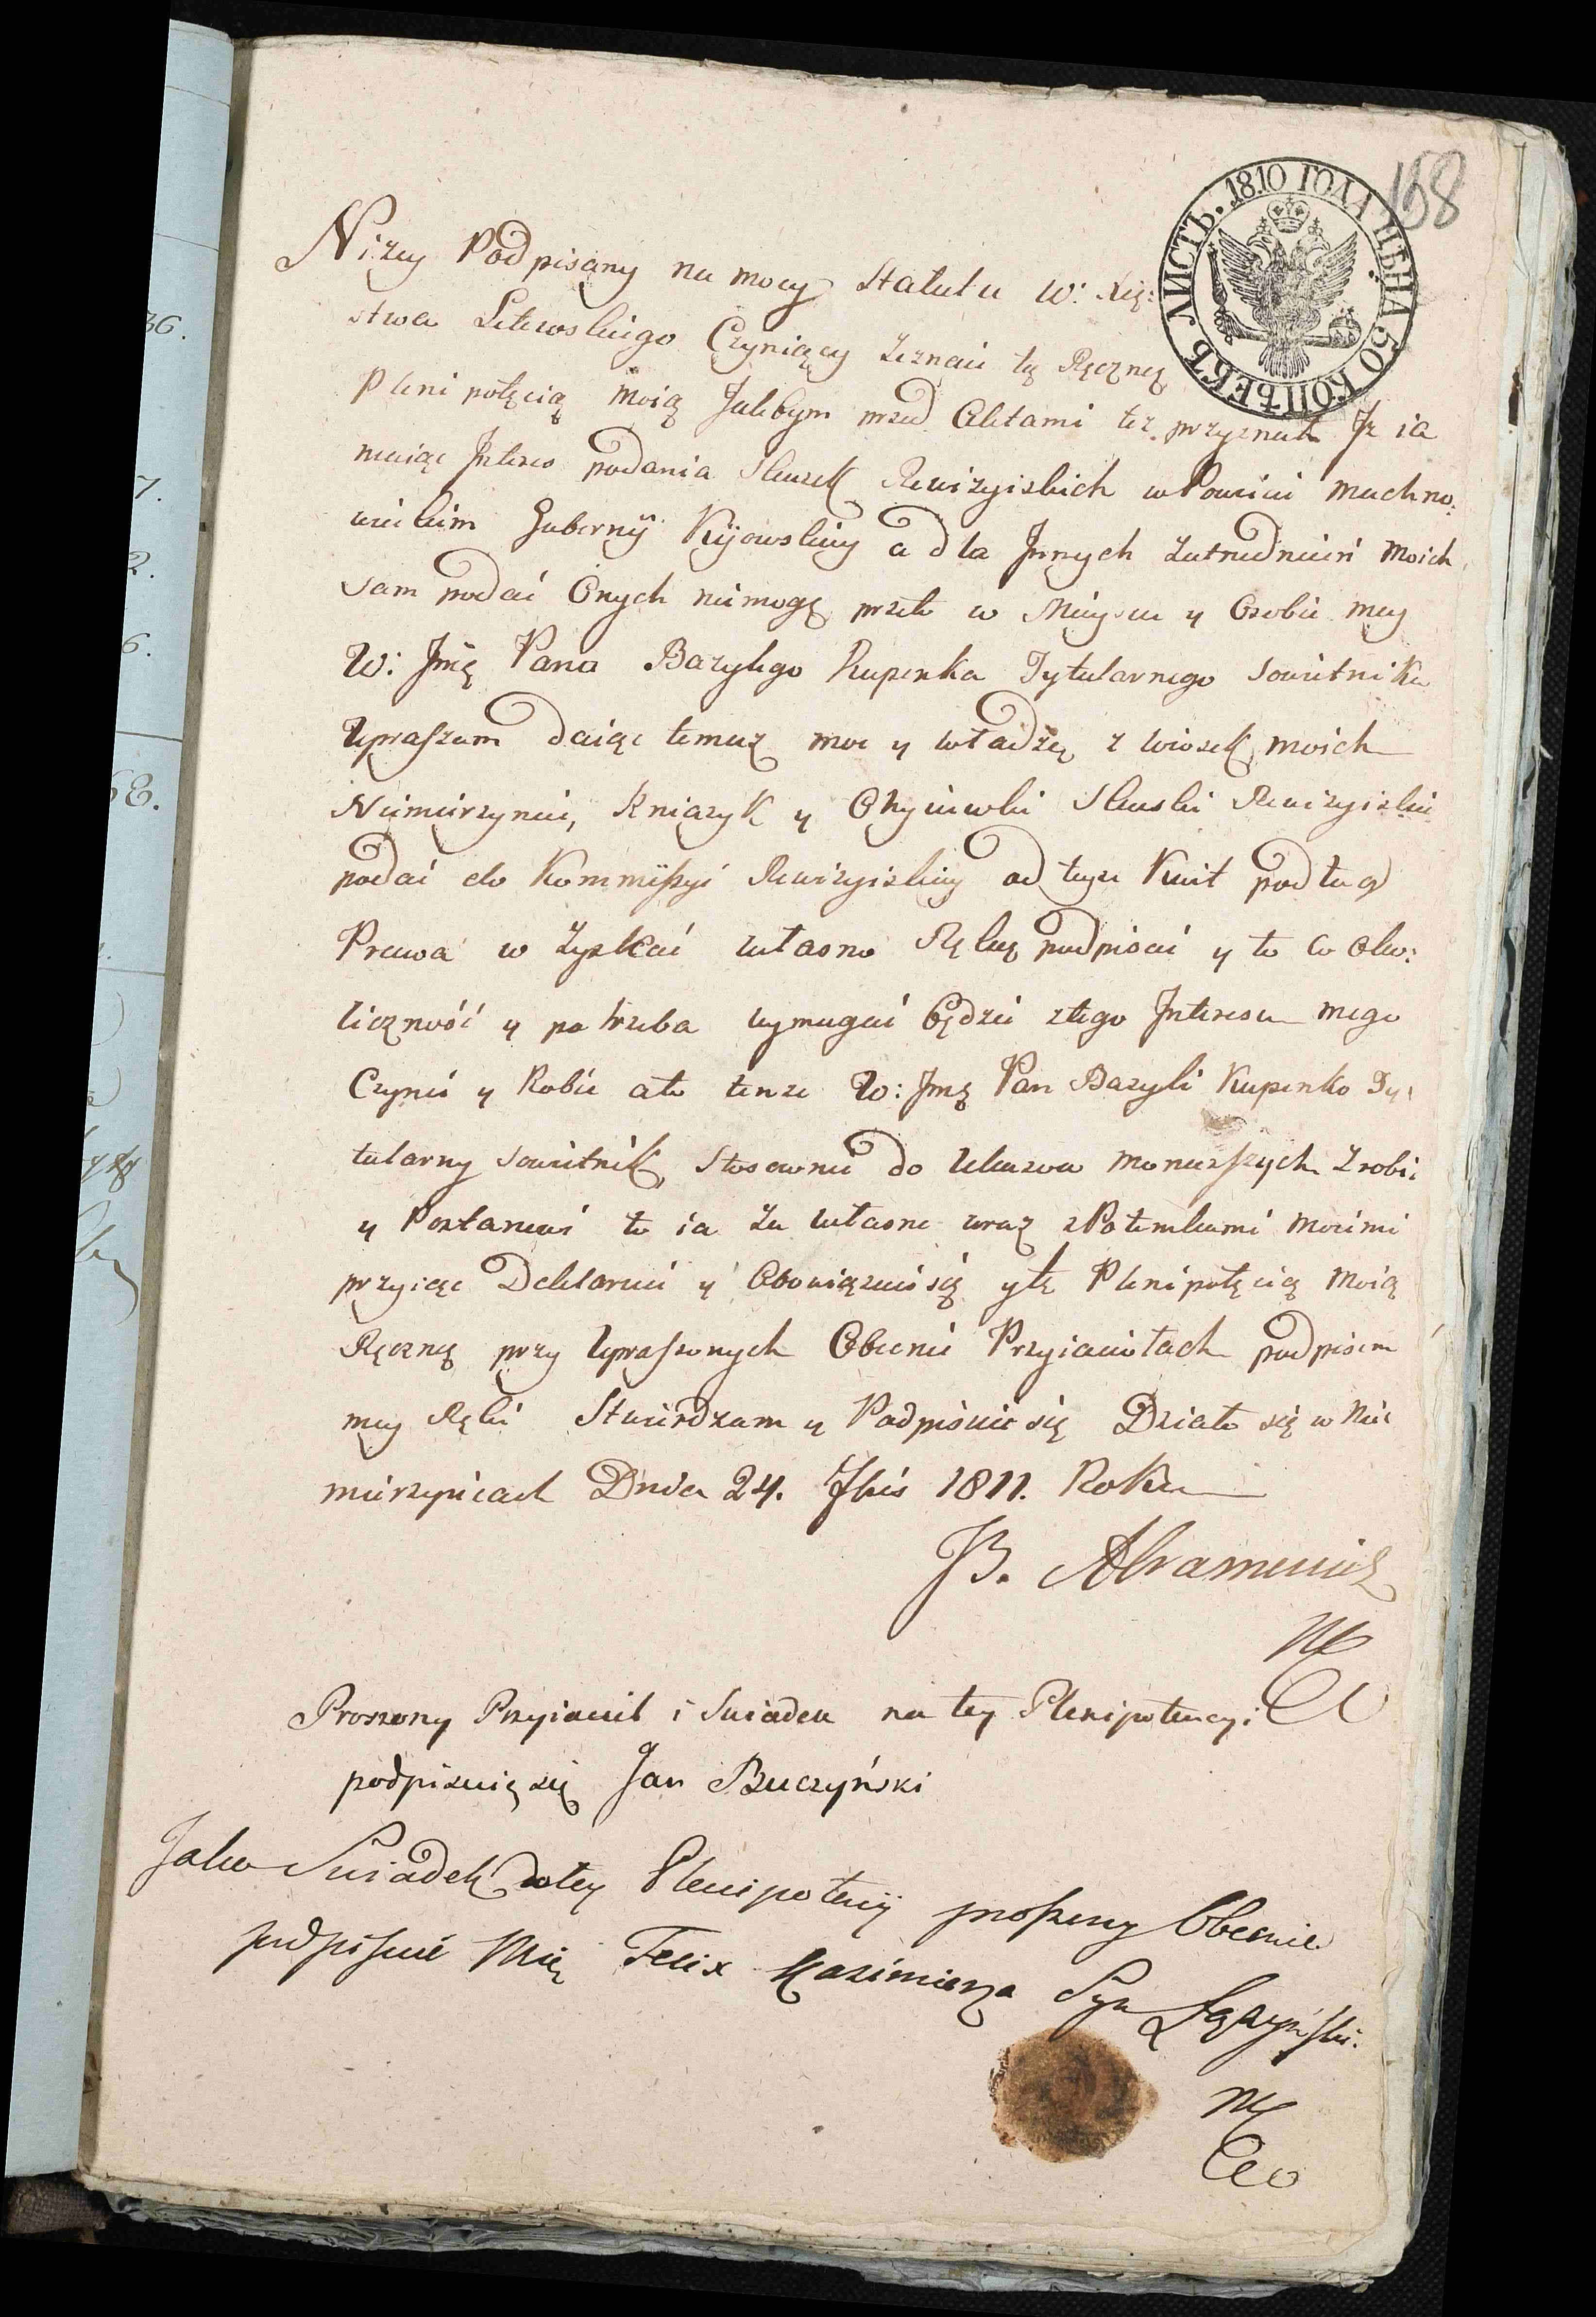 158
ЛИСТЪ. 1810 ГОДА ЦѢНА 50 КОПѢЕКЪ.
Niżey Podpisany na mocy Statutu W: Xię:
stwa Litewskiego Czyniący Zeznaie tę Ręczną
Plenipotęcią moią Jakbym przed Aktami też przyznał Iz ia
maiąc Interes podania Skazek Rewizyiskich w Powiecie Machno:
wieckim Gubernÿ Kijowskiey a dla Innych Zatrudnień moich
sam podać Onych niemogę przeto w Mieyscu y Osobie mey
W: Jmę Pana Bazylego Kupenka Tytularnego Sowietnika
Upraszam daiąc temuz moc y władzę z wiosek moich
Niemierzyniec, Kniażyk y Skazki Rewizyiskie
podać do Kommissyi Rewizyiskiey od teyze Kwit podług
Prawa w Zyskać własno Ręką podpisać y to co Oko:
liczność y potrzeba wymagać będzie z tego Interesu mego
Czynić y Robić a to tenze W: Jmę Pan Bazyli Kupenko Ty:
tularny Sowietnik Stosownie do Ukazow monarszych Zrobi
y Postanowi to ia za własne wraz z Potomkami moiemi
przyiąc Deklaruie y Obowiązuie się y tę Plenipotęcią moią
Ręczną przy Upraszonych Obecnie Przyiaciołach podpisem
mey Ręki Stwierdzam y Podpisuie się Działo się w Nie
mierzyńcach Dnia 24. 7bris 1811. Roku
B. Abramowicz
Proszony Przyiaciel i Swiadek na tey Plenipotencyi
podpisuię się Jan Buczyński
Jako Swiadek do tey Plenipotencÿ proszony Obecnie
podpisuie Się Felix Kazimierza Syn